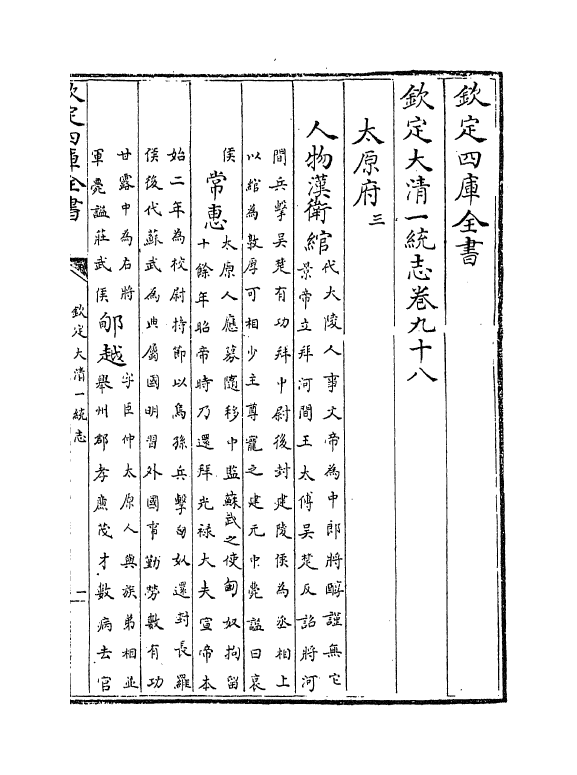 欽定四庫全書
欽定大清一統志卷九十八
太原府三
人物漢衛綰
代大陵人事文帝為中郎將醇謹無它
景帝立拜河間王太傅吳楚反詔將河
間兵擊吳楚有功拜中尉後封建陵侯為丞相上
以綰為敦厚可相少主尊寵之建元中薨諡曰哀
侯
常惠
太原人應募隨移中監蘇武之使匈奴拘留
十餘年昭帝時乃還拜光祿大夫宣帝本
始二年為校尉持節以烏孫兵擊匈奴還封長羅
侯後代蘇武為典屬國明習外國事勤勞數有功
甘露中為右將
軍薨諡莊武侯
郇越
字臣仲太原人與族弟相並
舉州郡孝廉茂才數病去官
欽定四庫全書
欽定大清一統志
一